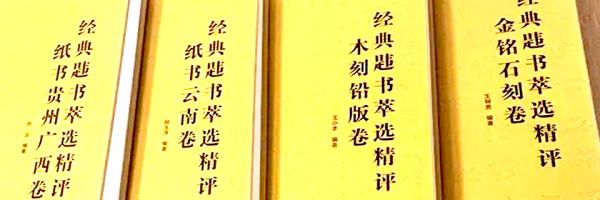 经典韪书萃选精评
纸书贵州广西卷
编著
经典韪书萃选精评
纸书云南卷
编著
经典韪书萃选精评
木刻铅版卷
编著
经典韪书萃选精评
金铭石刻卷
编著